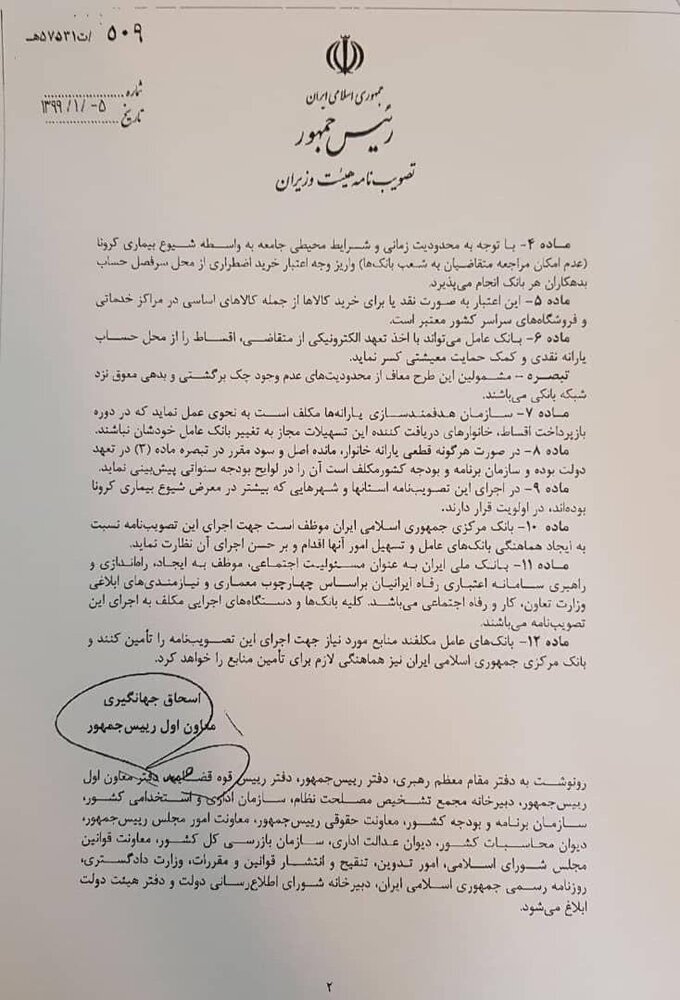 ۵۰۹ /ت۵۷۵۳۱هـ
شماره
۱۳۹۹/۱/۰۵
تاریخ
جمهوری اسلامی ایران
رئیس جمهور
تصویب نامه هیئت وزیران
ماده ۴- با توجه به محدودیت زمانی و شرایط محیطی جامعه به واسطه شیوع بیماری کرونا
(عدم امکان مراجعه متقاضیان به شعب بانک‌ها) واریز وجه اعتبار خرید اضطراری از محل سرفصل حساب
بدهکاران هر بانک انجام می‌پذیرد.
ماده ۵- این اعتبار به صورت نقد یا برای خرید کالاها از جمله کالاهای اساسی در مراکز خدماتی
و فروشگاه‌های سراسر کشور معتبر است.
ماده ۶- بانک عامل می‌تواند با اخذ تعهد الکترونیکی از متقاضی، اقساط را از محل حساب
یارانه نقدی و کمک حمایت معیشتی کسر نماید.
تبصره – مشمولین این طرح معاف از محدودیت‌های عدم وجود چک برگشتی و بدهی معوق نزد
شبکه بانکی می‌باشند.
ماده ۷- سازمان هدفمندسازی یارانه‌ها مکلف است به نحوی عمل نماید که در دوره
بازپرداخت اقساط، خانوارهای دریافت کننده این تسهیلات مجاز به تغییر بانک عامل خودشان نباشند.
ماده ۸- در صورت هرگونه قطعی یارانه خانوار، مانده اصل و سود مقرر در تبصره ماده (۳) در تعهد
دولت بوده و سازمان برنامه و بودجه کشورمکلف است آن را در لوایح بودجه سنواتی پیش‌بینی نماید.
ماده ۹- در اجرای این تصویب‌نامه استانها و شهرهایی که بیشتر در معرض شیوع بیماری کرونا
بوده‌اند، در اولویت قرار دارند.
ماده ۱۰- بانک مرکزی جمهوری اسلامی ایران موظف است جهت اجرای این تصویب‌نامه نسبت
به ایجاد هماهنگی بانک‌های عامل و تسهیل امور آنها اقدام و بر حسن اجرای آن نظارت نماید.
ماده ۱۱- بانک ملی ایران به عنوان مسئولیت اجتماعی، موظف به ایجاد، راه‌اندازی و
راهبری سامانه اعتباری رفاه ایرانیان براساس چهارچوب معماری و نیازمندی‌های ابلاغی
وزارت تعاون، کار و رفاه اجتماعی می‌باشد. کلیه بانک‌ها و دستگاه‌های اجرایی مکلف به اجرای این
تصویب‌نامه می‌باشند.
ماده ۱۲- بانک‌های عامل مکلفند منابع مورد نیاز جهت اجرای این تصویب‌نامه را تأمین کنند و
بانک مرکزی جمهوری اسلامی ایران نیز هماهنگی لازم برای تأمین منابع را خواهد کرد.
اسحاق جهانگیری
معاون اول رییس‌جمهور
رونوشت به دفتر مقام معظم رهبری، دفتر رییس‌جمهور، دفتر رییس قوه دفتر معاون اول
رییس‌جمهور، دبیرخانه مجمع تشخیص مصلحت نظام، سازمان اداری و استخدامی کشور،
سازمان برنامه و بودجه کشور، معاونت حقوقی رییس‌جمهور، معاونت امور مجلس رییس‌جمهور،
دیوان محاسبات کشور، دیوان عدالت اداری، سازمان بازرسی کل کشور، معاونت قوانین
مجلس شورای اسلامی، امور تدوین، تنقیح و انتشار قوانین و مقررات، وزارت دادگستری،
روزنامه رسمی جمهوری اسلامی ایران، دبیرخانه شورای اطلاع‌رسانی دولت و دفتر هیئت دولت
ابلاغ می‌شود.
۲